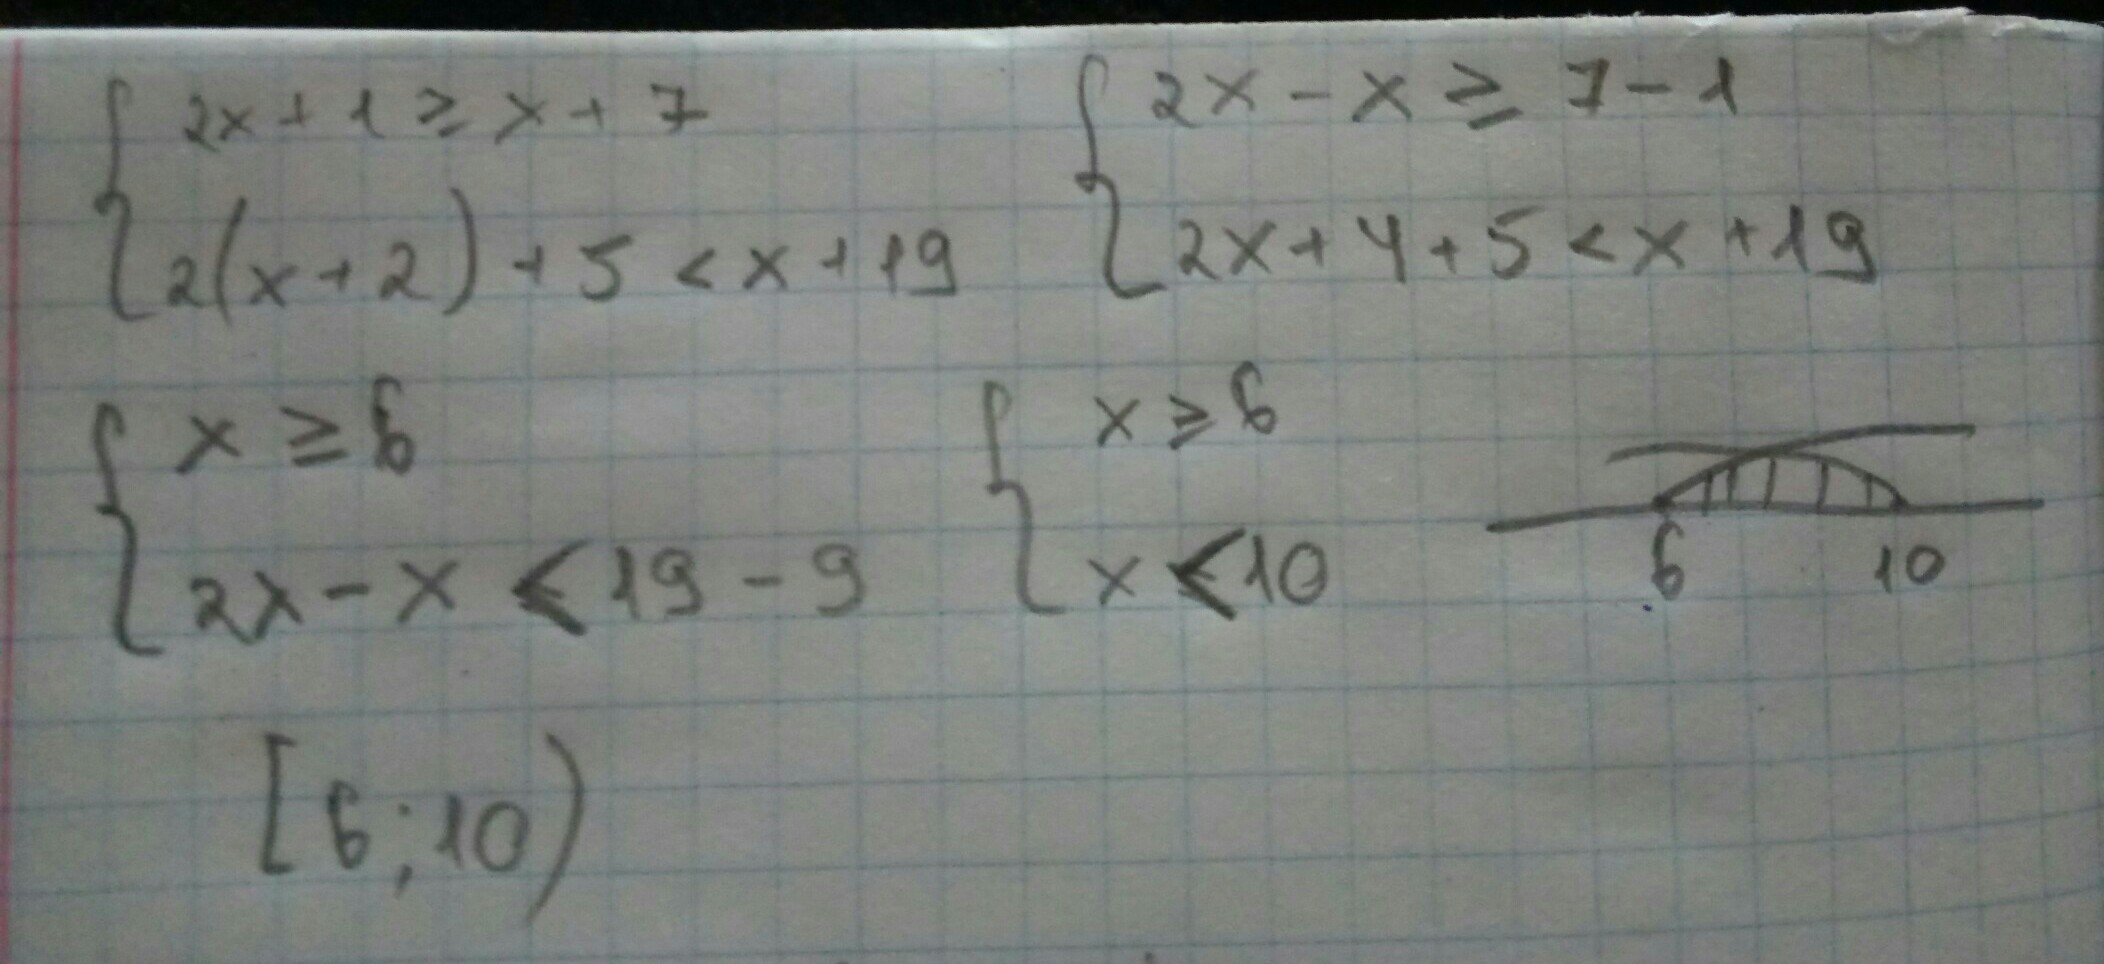 { 2x + 1 ≥ x + 7
2(x + 2) + 5 < x + 19
{ 2x - x ≥ 7 - 1
2x + 4 + 5 < x + 19
{ x ≥ 6
2x - x < 19 - 9
{ x ≥ 6
x < 10
6 10
[6; 10)